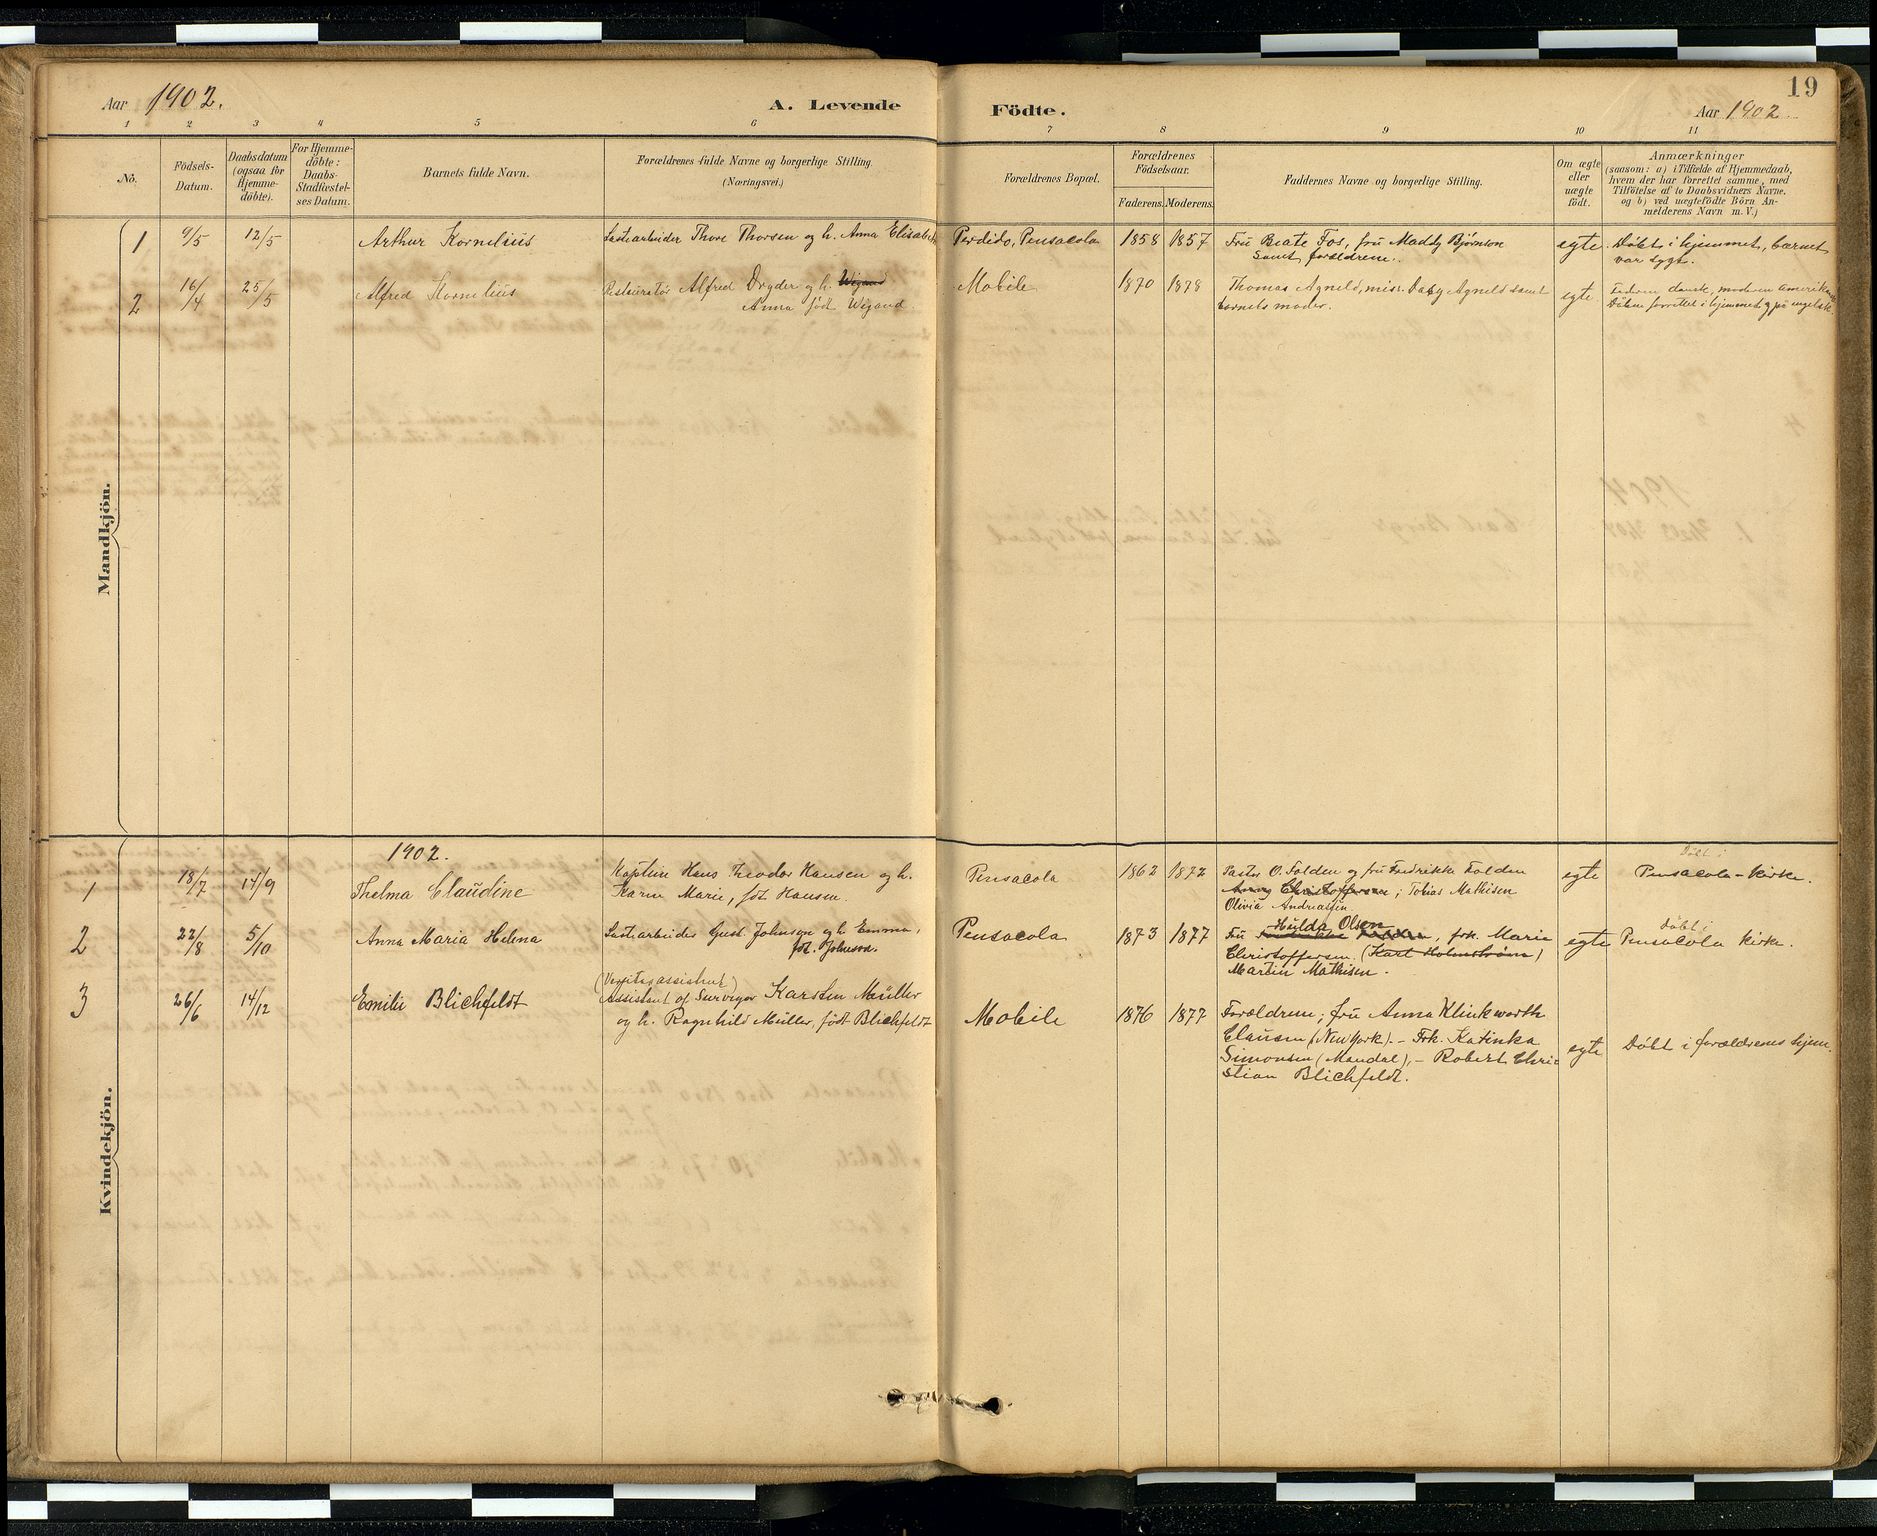 Aar 1902.
A. Levende Födte.
Aar 1902.
19
1 2 3 4 5 6 7 8 9 10 11
No.
Födsels-
Datum.
Daabsdatum
(ogsaa för
Hjemme-
döbte).
For Hjemme-
döbte:
Daabs-
Stadfæstel-
ses Datum.
Barnets fulde Navn.
Forældrenes fulde Navne og borgerlige Stilling.
(Næringsvei.)
Forældrenes Bopæl.
Forældrenes
Födselsaar.
Faderens. Moderens.
Faddernes Navne og borgerlige Stilling.
Om ægte
eller
uægte
födt.
Anmærkninger
(saasom: a) i Tilfælde af Hjemmedaab,
hvem der har forrettet samme, med
Tilföielse af to Daabsvidners Navne.
og b) ved uægtefödte Börn An-
melderens Navn m. V.)
Mandkjön.
1 9/5 12/5 Arthur Kornelius
Lastearbeider Thore Thorsen og h. Anna Elisabeth
Perdido, Pensacola 1858 1857
Fru Beate Fos, fru Maddy Bjørnson
samt forældrene.
egte
Döbt i hjemmet, barnet
var sygt.
2 16/4 25/5 Alfred Kornelius
Restauratör Alfred Dryder og h. Wigand
Anna født Wigand.
Mobile 1870 1878
Thomas Agneld, miss. Agneld samt
barnets moder.
egte
Faderen dansk, moderen amerikansk
Dåben forrettet i hjemmet og på engelsk.
Kvindekjön.
1902.
1 18/7 14/9 Thelma Claudine
Kaptein Hans Theodor Hansen og h.
Karen Marie, föt Hansen.
Pensacola 1862 1872
Pastor O. Folden og fru Fredrikke Folden
Anny Christoffersen; Tobias Mathisen
Olivia Andreassen.
egte
Döbt i
Pensacola-kirke.
2 22/8 5/10 Anna Maria Helena
Lastearbeider Gust. Johnson og h. Emma,
föt. Johnson.
Pensacola 1873 1877
Hulda Olsen
Fru Fredrikke Folden, frk. Marie
Christoffersen. (Karl Holmstrøm)
Martin Mathisen.
egte
Döbt i
Pensacola kirke.
3 26/6 14/12 Emilie Blichfeldt
(Veritasassistent)
Assistent of Surveyor Karsten Müller
og h. Ragnhild Müller, født Blichfeldt
Mobile 1876 1877
Forældrene; fru Anna Klinkworth
Clausen (New York). - Frk. Katinka
Simonsen (Mandal), - Robert Chri
stian Blichfeldt.
egte
Döbt i forældrenes hjem.